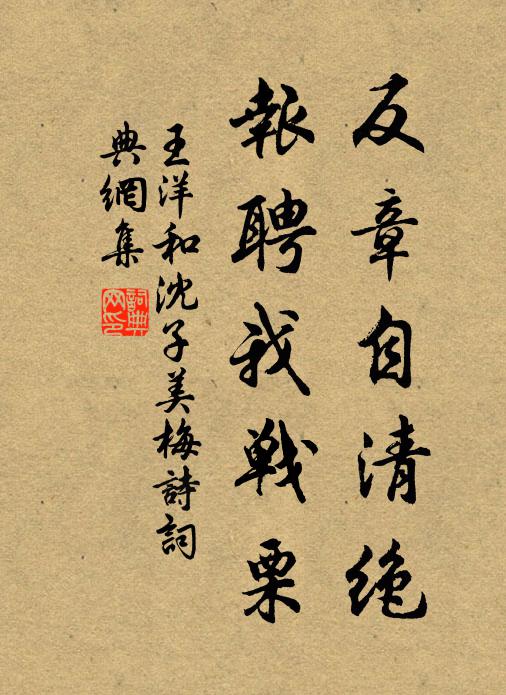 反章自清绝
報聘我戰栗
王洋和沈子美梅詩詞
典網集
詞典
网印